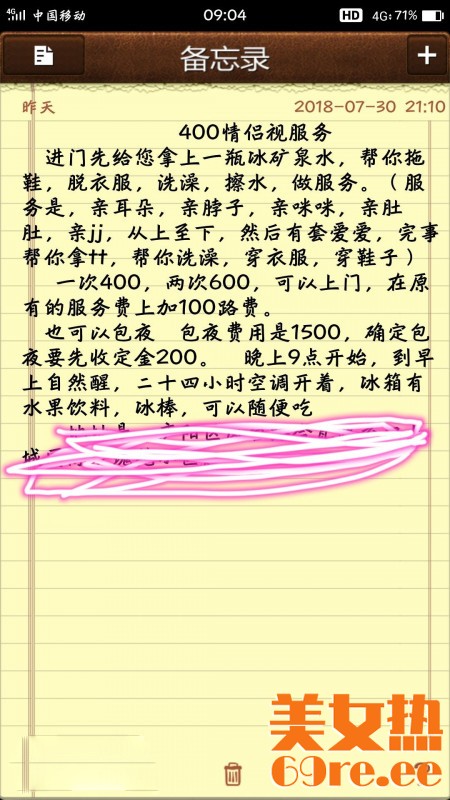 中国移动 09:04 HD 4G 71%
备忘录
昨天 2018-07-30 21:10
400情侣视服务
进门先给您拿上一瓶冰矿泉水，帮你拖
鞋，脱衣服，洗澡，擦水，做服务。（服
务是，亲耳朵，亲脖子，亲咪咪，亲肚
肚，亲jj，从上至下，然后有套爱爱，完事
帮你拿tt，帮你洗澡，穿衣服，穿鞋子）
一次400，两次600，可以上门，在原
有的服务费上加100路费。
也可以包夜 包夜费用是1500，确定包
夜要先收定金200。 晚上9点开始，到早
上自然醒，二十四小时空调开着，冰箱有
水果饮料，冰棒，可以随便吃
城
美女热
69re.ee